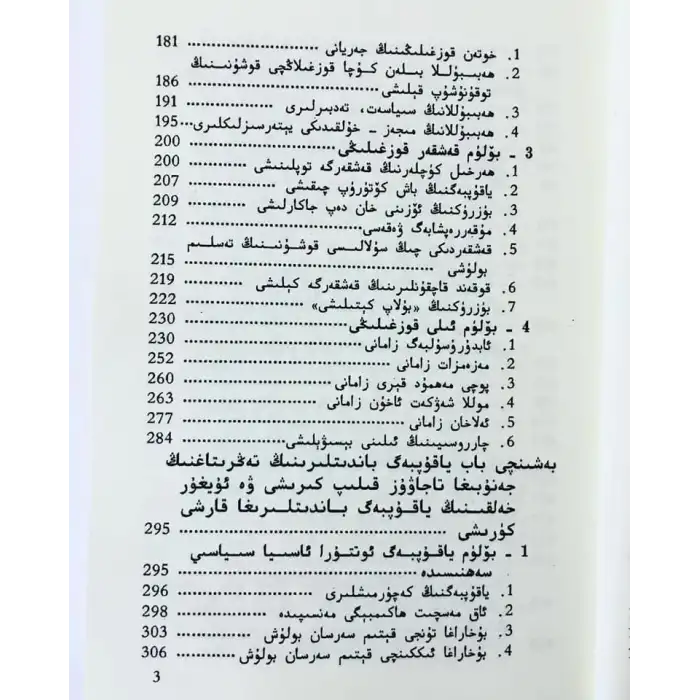 1. خوتەن قوزغىلىڭىنىڭ جەريانى ........................ 181
2. ھەبىبۇللا بىلەن كۇچا قوزغىلاڭچى قوشۇنىنىڭ
توقۇنۇشۇپ قېلىشى ........................ 186
3. ھەبىبۇللانىڭ سىياسەت، تەدبىرلىرى ............... 191
4. ھەبىبۇللانىڭ مىجەز - خۇلقىدىكى يېتەرسىزلىكلىرى... 195
3 - بۆلۈم قەشقەر قوزغىلىڭى ........................ 200
1. ھەرخىل كۈچلەرنىڭ قەشقەرگە توپلىنىشى ............ 200
2. ياقۇپبەگنىڭ باش كۆتۈرۈپ چىقىشى ............ 207
3. بۇزرۈكنىڭ ئۆزىنى خان دەپ جاكارلىشى ............ 209
4. مۇقەررەپشابەگ ۋەقەسى ........................ 212
5. قەشقەردىكى چىڭ سۇلالىسى قوشۇنىنىڭ تەسلىم
بولۇشى ........................ 215
6. قوقەند قاچقۇنلىرىنىڭ قەشقەرگە كېلىشى ............ 219
7. بۇزرۈكنىڭ «بۇلاپ كېتىلىشى» ............... 222
4 - بۆلۈم ئىلى قوزغىلىڭى ........................ 230
1. ئابدۇرۇسۇلبەگ زامانى ........................ 230
2. مەزەمزات زامانى ........................ 252
3. پوچى مەھمۇد قېرى زامانى ........................ 260
4. موللا شەۋكەت ئاخۇن زامانى ........................ 263
5. ئەلاخان زامانى ........................ 277
6. چاررۇسىيىنىڭ ئىلىنى بېسىۋېلىشى ............... 284
بەشىنچى باب ياقۇپبەگ باندىتلىرىنىڭ تەڭرىتاغنىڭ
جەنۇبىغا تاجاۋۇز قىلىپ كىرىشى ۋە ئۇيغۇر
خەلقىنىڭ ياقۇپبەگ باندىتلىرىغا قارشى
كۈرىشى ........................ 295
1 - بۆلۈم ياقۇپبەگ ئوتتۇرا ئاسىيا سىياسىي
سەھنىسىدە ........................ 295
1. ياقۇپبەگنىڭ كەچۈرمىشلىرى ............... 296
2. ئاق مەسچىت ھاكىمبېگى مەنسىپىدە ............... 298
3. بۇخاراغا تۇنجى قېتىم سەرسان بولۇش ............ 303
4. بۇخاراغا ئىككىنچى قېتىم سەرسان بولۇش ......... 306
3